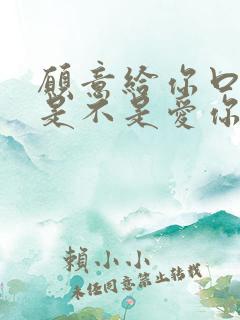 願意給你口
是不是愛你
賴小小
未經同意禁止轉載